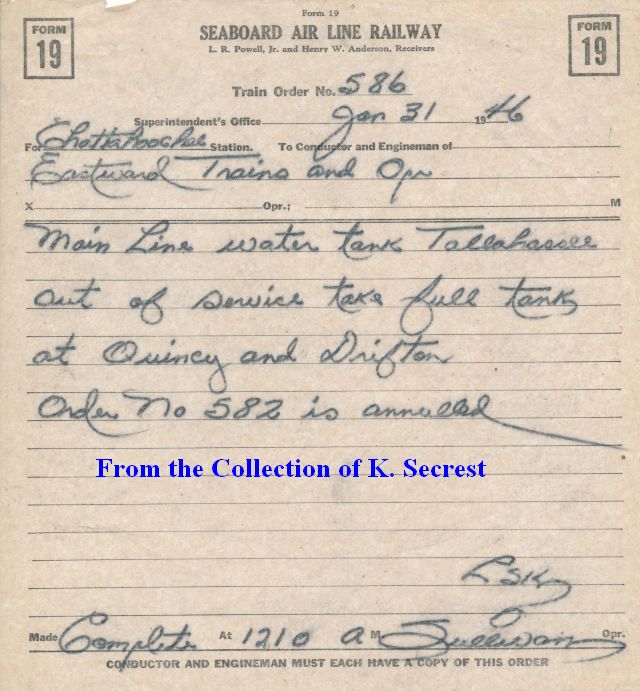 Form 19
FORM 19
SEABOARD AIR LINE RAILWAY
FORM 19
L. R. Powell, Jr. and Henry W. Anderson, Receivers
Train Order No. 586
Superintendent's Office Jan 31 1946
For Chattahoochee Station. To Conductor and Engineman of
Eastward Trains and Opr
X Opr.; M
Main Line water tank Tallahassee
out of service take full tank
at Quincy and Drifton
Order No 582 is annulled
From the Collection of K. Secrest
LSK
Made Complete At 1210 A M Sullivan Opr.
CONDUCTOR AND ENGINEMAN MUST EACH HAVE A COPY OF THIS ORDER